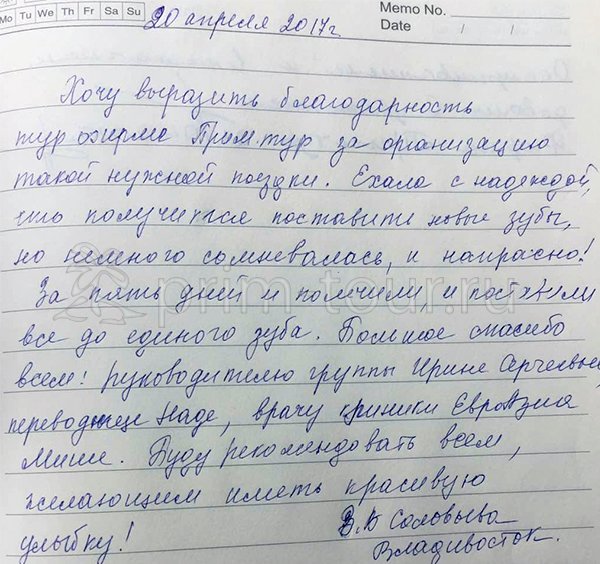 Mo Tu We Th Fr Sa Su
Memo No.
Date / /
20 апреля 2017г
Хочу выразить благодарность
тур фирме Прим.тур за организацию
такой нужной поездки. Ехала с надеждой,
что получится поставить новые зубы,
но немного сомневалась, и напрасно!
За пять дней и полечили и поставили
все до единого зуба. Большое спасибо
всем! руководителю группы Ирине Сергеевне,
переводчице Наде, врачу клиники ЕврАзия
Мише. Буду рекомендовать всем,
желающим иметь красивую
улыбку!
В.В Соловьева
Владивосток.
prim-tour.ru